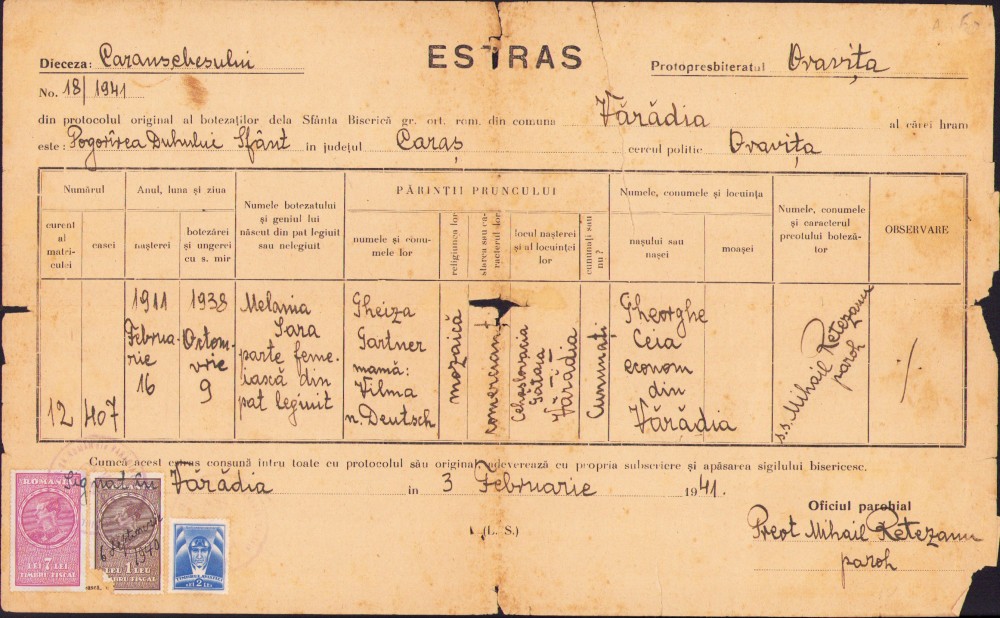 ESTRAS
Dieceza: Caransebesului
Protopresbiteratul Oravița
No. 18/1941
din protocolul original al botezaților dela Sfânta Biserică gr. ort. rom. din comuna Vărădia al cărei hram
este: Pogorîrea Duhului Sfânt în județul Caraș cercul politic Oravița
Numărul
curent al matriculei
casei
Anul, luna și ziua
nașterei
botezărei și ungerei cu s. mir
Numele botezatului și geniul lui născut din pat legiuit sau nelegiuit
PĂRINȚII PRUNCULUI
numele și conumele lor
religiunea lor
starea sau caracterul lor
locul nașterei și al locuinței lor
cununați sau nu?
Numele, conumele și locuința
nașului sau nașei
moașei
Numele, conumele și caracterul preotului botezător
OBSERVARE
12
407
1911
Februa-
rie
16
1938
Octom-
vrie
9
Melania
Sara
parte feme-
iască din
pat legiuit
Gheiza
Gartner
mamă:
Vilma
n. Deutsch
mozaică
comerciant
Cehoslovacia
Gătaia
Vărădia
Cununați
Gheorghe
Ceia
econom
din
Vărădia
s.s. Mihail Retezanu
paroh
Cumcă acest estras consună întru toate cu protocolul său original adeverează cu propria subscriere și apăsarea sigilului bisericesc.
Signat în Vărădia in 3 Februarie 1941.
(L. S.)
Oficiul parohial
Preot Mihail Retezanu
paroh
ROMANIA
LEI 7 LEI
TIMBRU FISCAL
LEU 1 LEU
TIMBRU FISCAL
1940
LEI 2 LEI